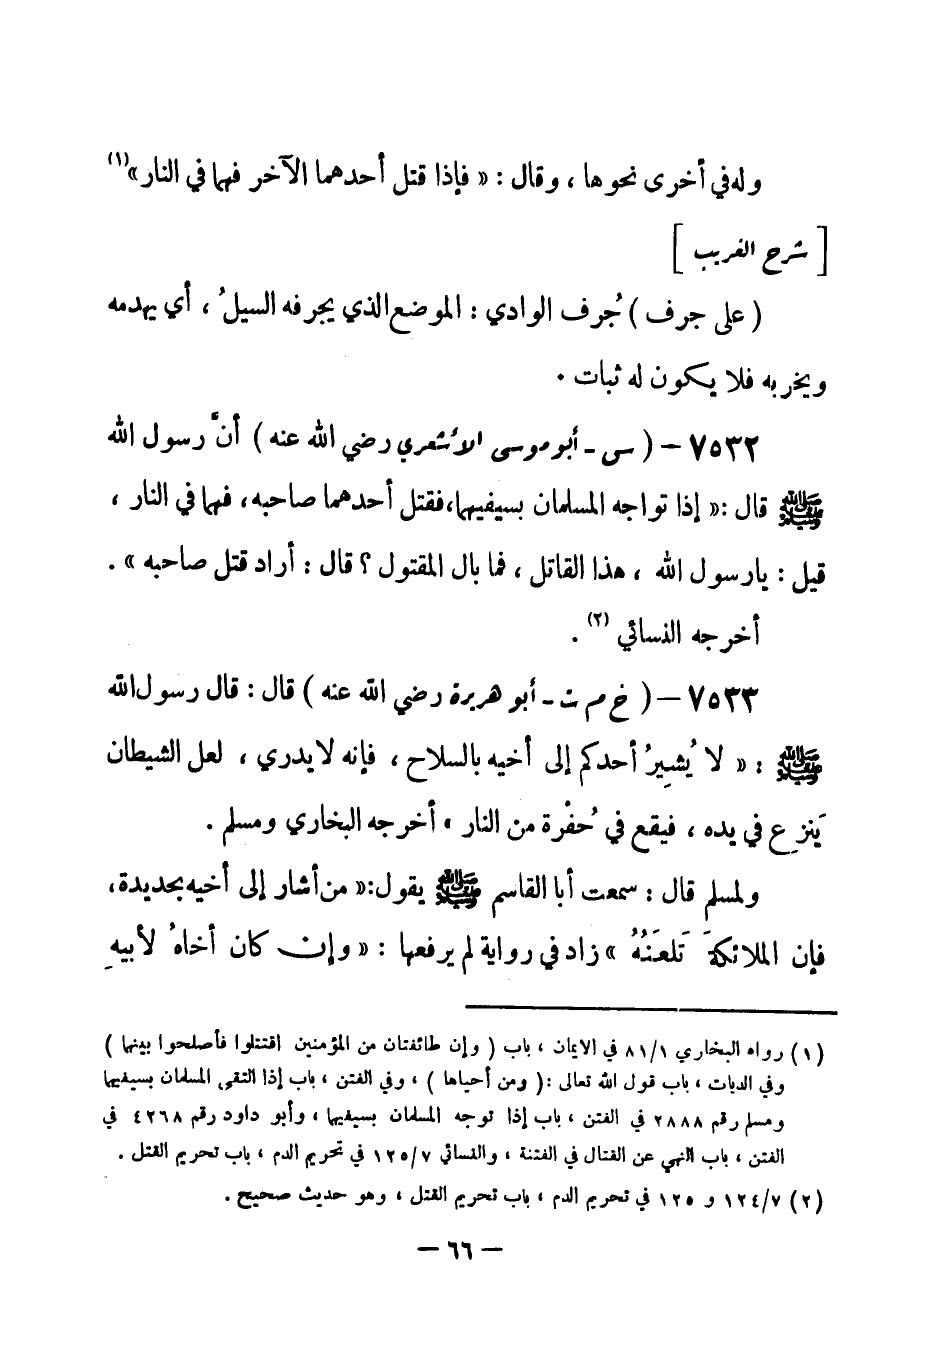 وله في أخرى نحوها ، وقال : « فإذا قتل أحدهما الآخر فهما في النار » (١)
[ شرح الغريب ]
( على جرف ) جُرف الوادي : الموضع الذي يجرفه السيلُ ، أي يهدمه
ويخربه فلا يكون له ثبات .
٧٥٣٢ – ( س – أبو موسى الأشعري رضي الله عنه ) أنَّ رسول الله
ﷺ قال : « إذا تواجه المسلمان بسيفيهما ، فقتل أحدهما صاحبه ، فهما في النار ،
قيل : يا رسول الله ، هذا القاتل ، فما بال المقتول ؟ قال : أراد قتل صاحبه » .
أخرجه النسائي (٢) .
٧٥٣٣ – ( خ م ت – أبو هريرة رضي الله عنه ) قال : قال رسول الله
ﷺ : « لا يُشِيرُ أحدكم إلى أخيه بالسلاح ، فإنه لا يدري ، لعل الشيطان
يَنزِع في يده ، فيقع في حُفْرة من النار » أخرجه البخاري ومسلم .
ولمسلم قال : سمعت أبا القاسم ﷺ يقول : « من أشار إلى أخيه بحديدة ،
فإن الملائكةَ تَلعَنُهُ » زاد في رواية لم يرفعها : « وإن كان أخاهُ لأبيهِ
(١) رواه البخاري ٨١/١ في الايمان ، باب ( وإن طائفتان من المؤمنين اقتتلوا فأصلحوا بينهما )
وفي الديات ، باب قول الله تعالى : ( ومن أحياها ) ، وفي الفتن ، باب إذا التقى المسلمان بسيفيهما
ومسلم رقم ٢٨٨٨ في الفتن ، باب إذا توجه المسلمان بسيفيهما ، وأبو داود رقم ٤٢٦٨ في
الفتن ، باب النهي عن القتال في الفتنة ، والنسائي ١٢٥/٧ في تحريم الدم ، باب تحريم القتل .
(٢) ١٢٤/٧ و ١٢٥ في تحريم الدم ، باب تحريم القتل ، وهو حديث صحيح .
– ٦٦ –